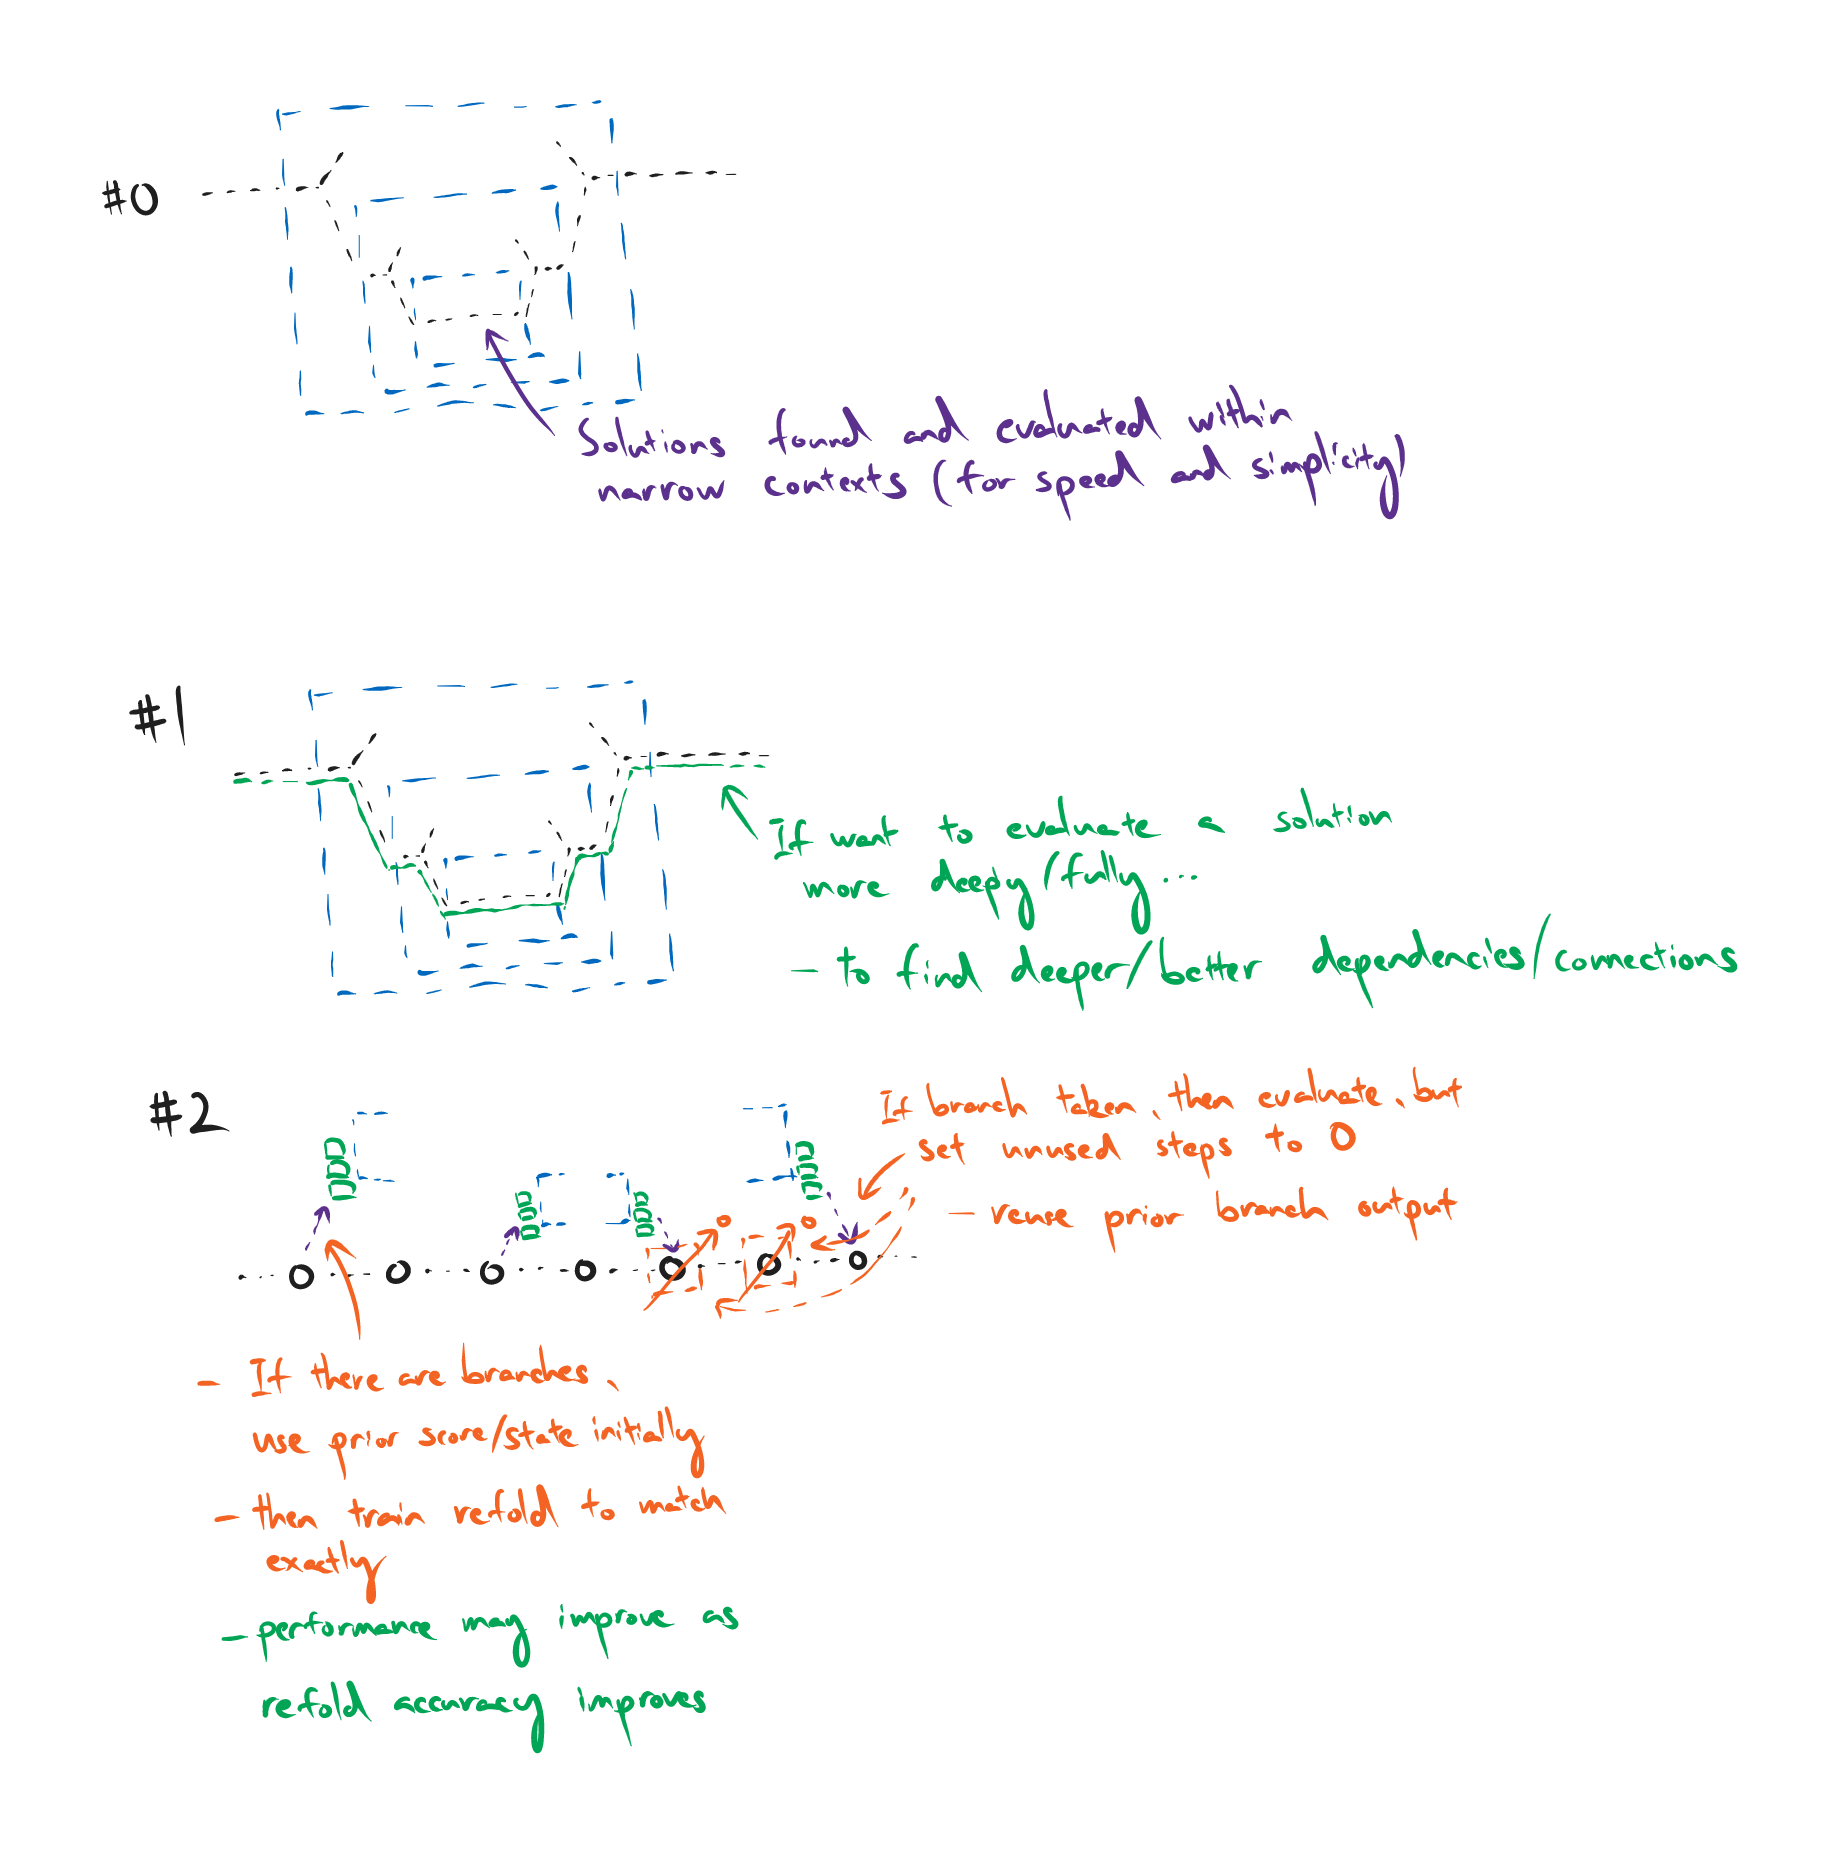 #0
Solutions found and evaluated within
narrow contexts (for speed and simplicity)
#1
If want to evaluate a solution
more deepy/fully...
- to find deeper/better dependencies/connections
#2
If branch taken, then evaluate, but
set unused steps to 0
- reuse prior branch output
- If there are branches,
use prior score/state initially
- then train refold to match
exactly
- performance may improve as
refold accuracy improves